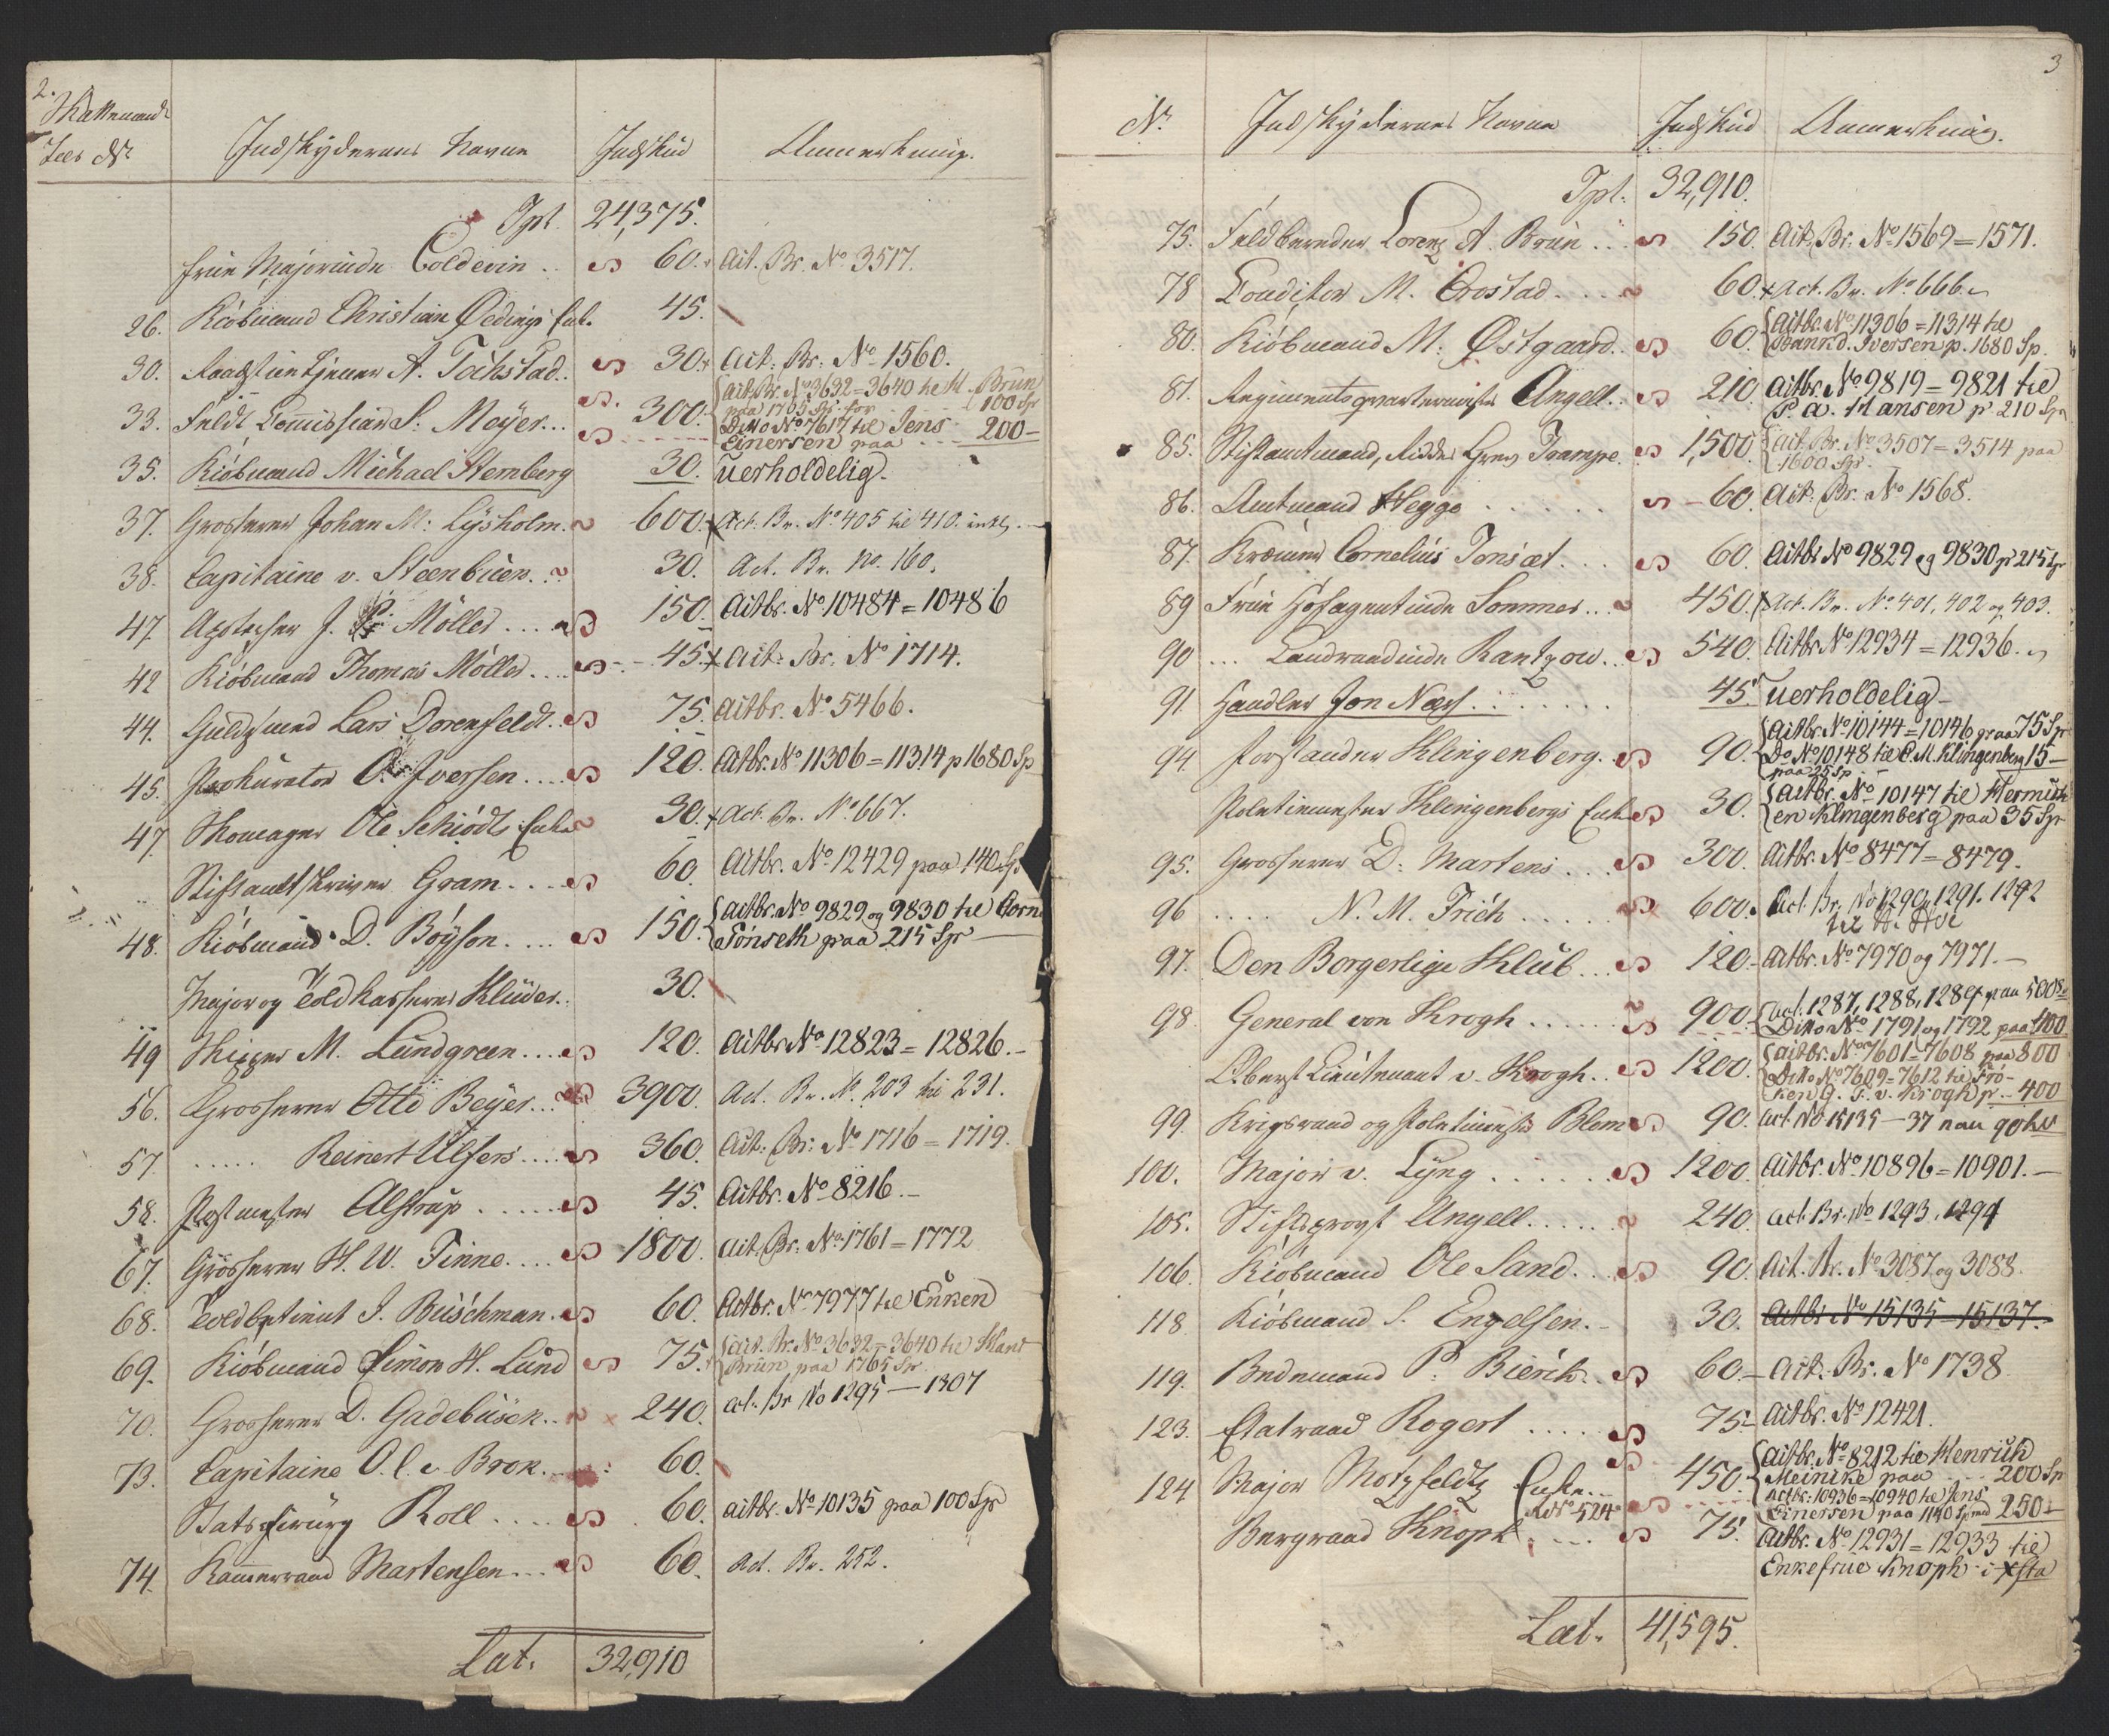 2.
Indskydernes Navne Indskud Anmerkning.
Tpt. 24,375.
Frue Majorinde Coldevin . . 60. Act. Br. No 3517.
26. Kiöbmand Christian Ödings Enk. 45.
30. A. Tochstad . . 30. Act. Br. No 1560.
33. Feldt Commissair S. Meyer . . . 300. Act. Br. No 3632 = 3640 til H. Brun
paa 1765 Sp. for 100 Sp
Ditto No 7617 til Jens
Einersen paa 200 –
35. Kiöbmand Michael Sternberg 30. uerholdelig.
37. Grosserer Johan M: Lysholm. 600. Act. Br. No 405 til 410. inkl.
38. Capitaine v. Steenbuen . . 30. Act. Br. No. 160.
47. Apotecher J. P. Möller . . . . 150. Actbr. No 10484 = 10486
42 Kiöbmand Thomas Möller . . . . 45. Act. Br. No 1714.
44. Guldsmed Lars Dorenfeldt . . 75. Actbr. No 5466.
45. Prokurator O. Iversen . . . . 120. Actbr. No 11306 = 11314 p 1680 Sp
47. Skomager Ole Schiödts Enke 30. Act. Br. No 667.
Stiftamtskriver Gram . . . . 60. Actbr. No 12429 paa 140 Sp
48. Kiöbmand D. Böyson . . . . 150. Actbr. No 9829 og 9830 til Corn
Tönseth paa 215 Spr
Major og Toldkasserer Klüver . . 30.
49 Skipper M. Lundgreen . . . . 120. Actbr No 12823 = 12826. –
56. Grosserer Otto Beyer . . . 3900. Act. Br. No. 203 til 231.
57. . . . . . Reinert Ulfers . . . . 360. Act. Br: No 1716 = 1719.
58. Postmester Alstrup . . . . . . 45. Actbr. No 8216. –
67. Grosserer H. W. Finne . . . . 1800. Act. Br: No 1761 = 1772
68. Toldbetient J. Buschman . 60. Actbr. No 7977 til Enken
69. Kiöbmand Simon H. Lund 75. Act. Br. No 3632 = 3640 til
Brun paa 1765 Sp.
70. Grosserer D. Gadebusch . . 240. act. Br No 1295 — 1307
73. Capitaine O. C. v. Brok . . . . 60.
Batschirurg Roll . . . . . 60. Actbr. No 10135 paa 100 Spr
74. Kammerraad Martensen . . . 60. Act. Br. 252.
Lat. 32,910
3
No Indskydernes Navne Indskud Anmerkning.
Tpt. 32,910.
75. Feldbereder Lorenz A. Brun . . 150. Act. Br. No 1569 = 1571.
78 Conditor M. Crostad . . . . 60. Act. Br. No 666.
80. Kiöbmand M. Östgaard . . 60. Actbr. No 11306 = 11314 til
Iversen p. 1680 Sp.
81. Regimentsqvartermester Angell . . 210. Actbr. No 9819 = 9821 til
P. A. Hansen p 210 Spr
85. Stiftamtmand, Ridder Grev Trampe. 1,500. Act. Br. No 3507 = 3514 paa
1600 Spr.
86. Amtmand Hegge . . . . . . 60. Act. Br. No 1568.
87. Kræmer Cornelius Tonsæt . . . 60. Actbr No 9829 og 9830 p 215 Spr
89 Frue Hofagentinde Sommer . . . 450. Act. Br. No 401, 402 og 403.
90 . . . Landraadinde Rantzow . . 540. Actbr No 12934 = 12936.
91 Handler Jon Næss . . . . . . . . 45. uerholdelig –
94. Forstander Klingenberg . . 90. Actbr. No 10144 = 10146 paa 75 Spr
Do No 10148 til C. M. Klingenberg 15 –
paa 25 Sp
Politiemester Klingenbergs Enke 30. Actbr. No 10147 til
en Klingenberg paa 35 Spr
95. Grosserer D. Martens . . . 300. Actbr. No 8477 = 8479.
96 . . . . N. M. Frich . . . . . 600. Act. Br. No 1290, 1291. 1292
97. Den Borgerlige Klub . . . 120. Actbr. No 7970 og 7971. –
98. General von Krogh . . . . . . 900. Act. 1287, 1288, 1289 paa 500
Ditto No 1791 og 1792 paa 400
Oberst Lieutenant v. Krogh . . 1200. Actbr. No 7601 = 7608 paa 800
Ditto No 7609 = 7612 til Frö-
ken G. F. v. Krogh p. – 400
99. Krigsraad og Politimester Blom 90. act. No 15135 — 37
100. Major v. Lyng . . . . . . 1200. Actbr. No 10896 = 10901. –
105. Stiftsprovst Angell . . . . . . 240. act. Br. No 1293, 1294
106. Kiöbmand Ole Sand . . . 90. Act. Br. No 3087 og 3088.
118 Kiöbmand S. Engelsen . – 30. Actbr No 15135 – 15137.
119. Bedemand P. Bierck . . 60. – Act. Br. No 1738
123. Etatraad Rogert . . . . . 75 – Actbr. No 12421.
124 Major Motzfeldtz Enke . . . 450. Actbr. No 8212 til Henrich
Meincke paa . . . 200 Sp
Actbr: 10936 = 10940 til Jens
No 524 Einersen paa 1140 Sp med 250 –
Bergraad Knoph . . . . 75. Actbr. No 12931 = 12933 til
Enkefrue Knoph
Lat. 41,595.